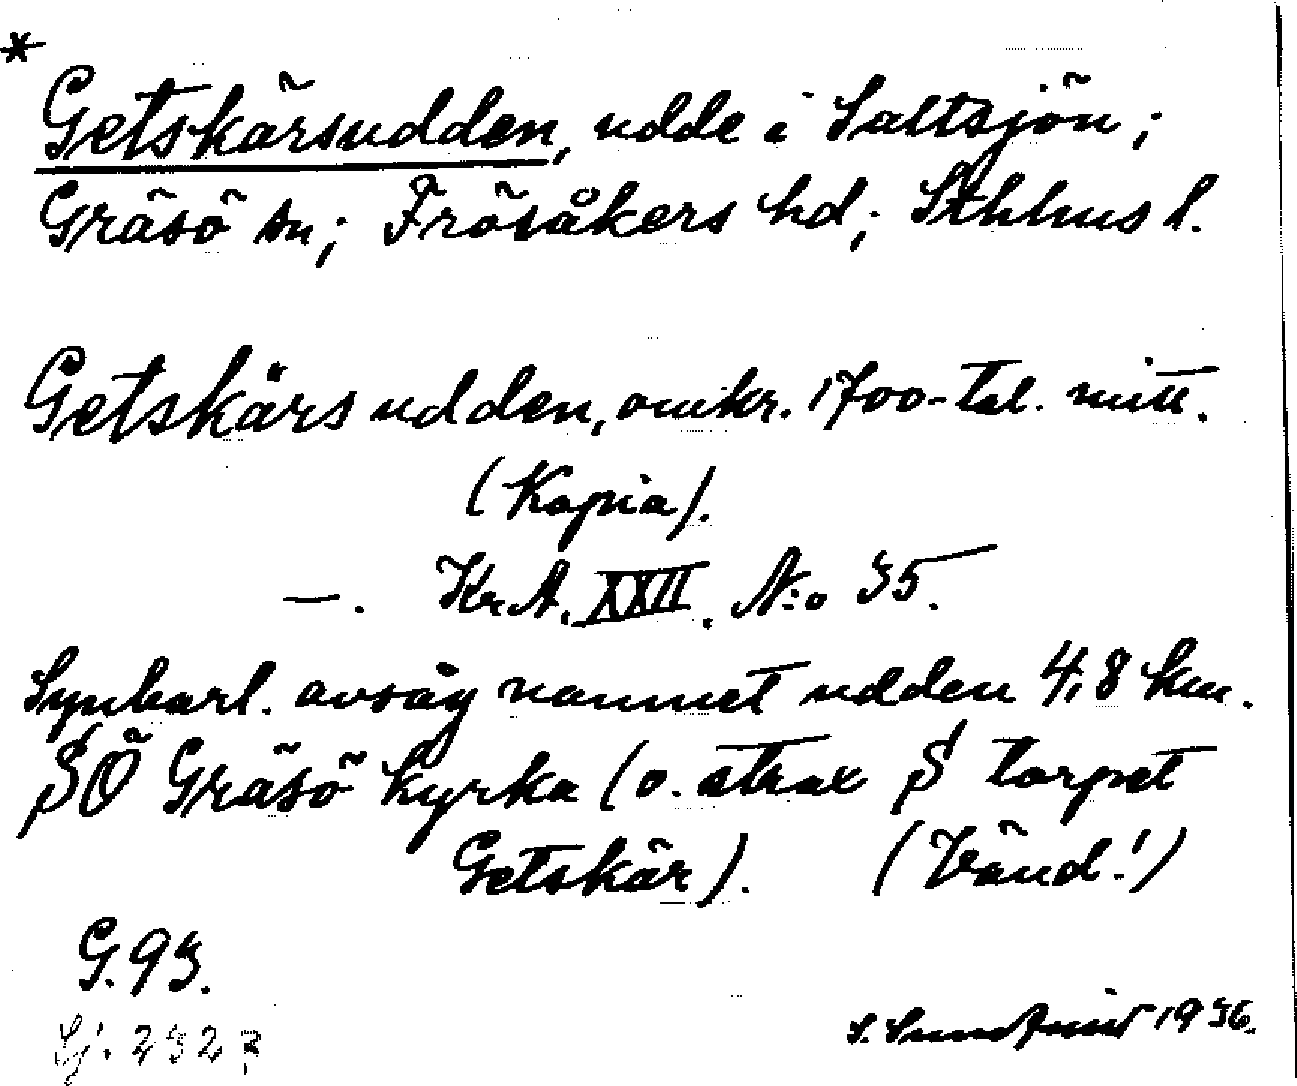 *
Getskärsudden, udde i Saltsjön;
Gräsö sn; Frösåkers hd; Sthlms l.
Getskärsudden, omkr. 1700-tal. mitt.
(Kopia).
—. Kr.A. XXII. N:o 35.
Synbarl. avsåg namnet udden 4,8 km.
SÖ Gräsö kyrka (o. strax S torpet
Getskär). (Vänd!)
G.93.
Lj. 2323
S. Sundqvist 1936.